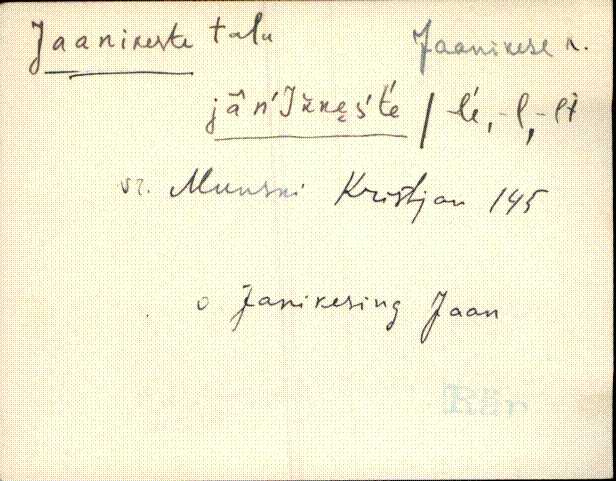 Jaanikeste talu Jaanikese r.
jâńIkkęśt́e / -lé, -l, -lt
vr. Munski Kristjan 145
o Janikesing Jaan
Rän